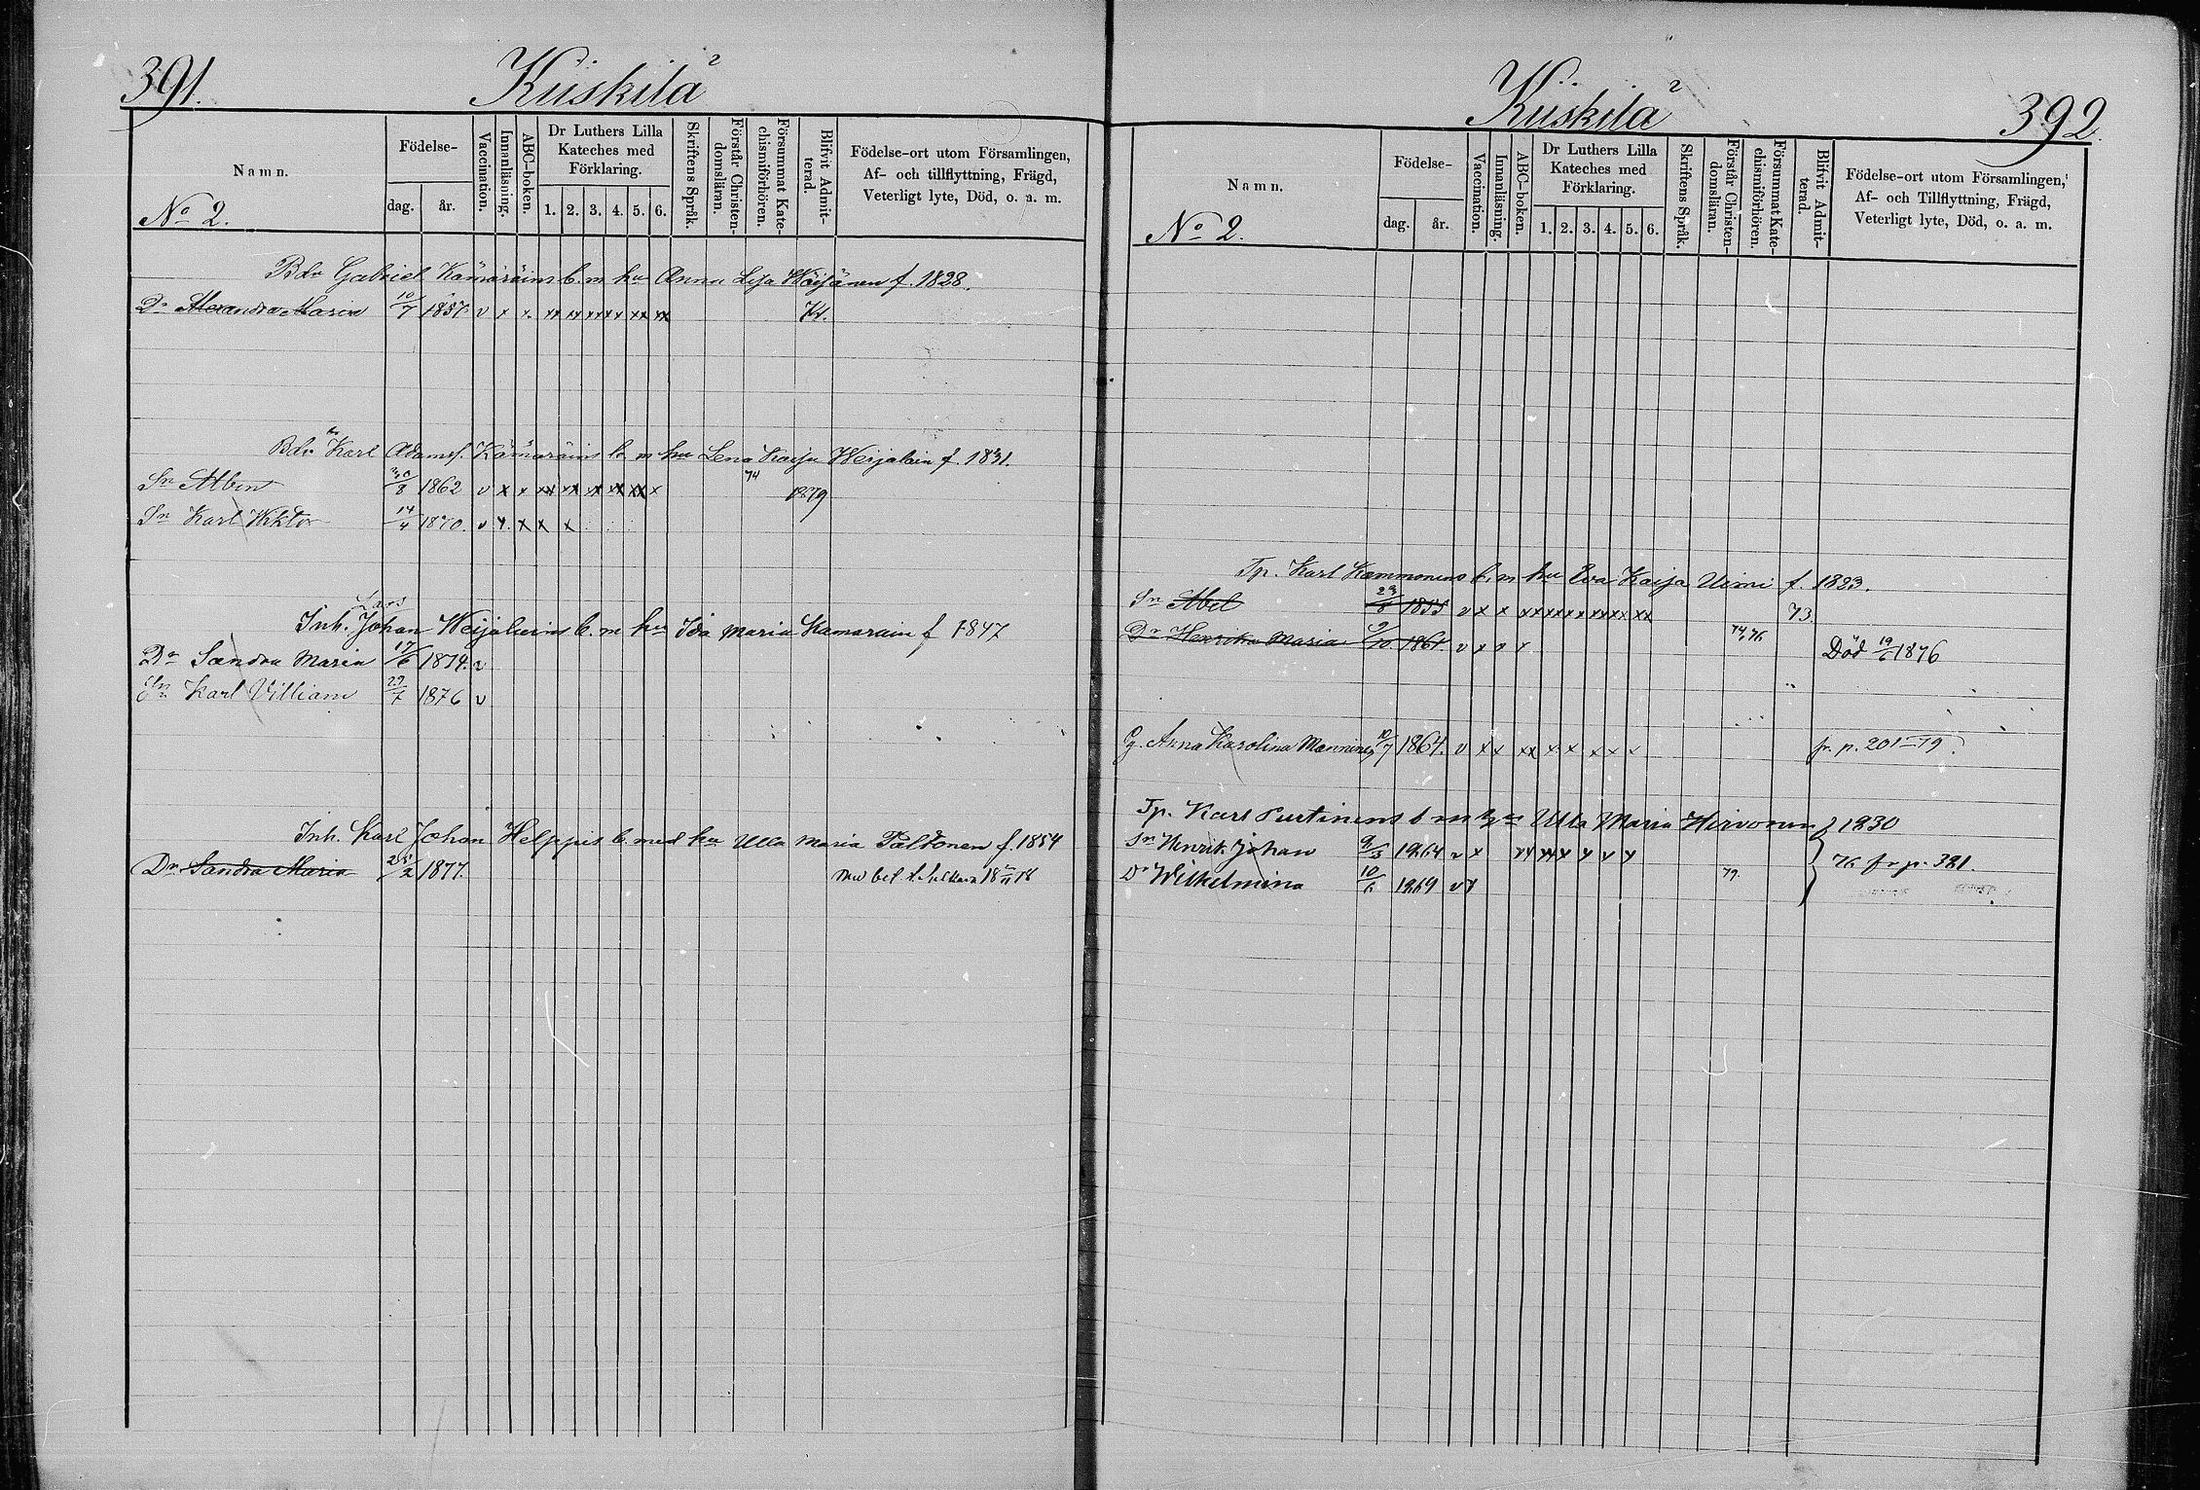 391.
Kiiskilä
Namn.
Födelse-
dag.
år.
Vaccination.
Innanläsning.
ABC-boken.
Dr Luthers Lilla
Kateches med
Förklaring.
1. 2. 3. 4. 5. 6.
Skriftens Språk.
Förstår Christen-
domsläran.
Försummat Kate-
chismiförhören.
Blifvit Admit-
terad.
Födelse-ort utom Församlingen,
Af- och tillflyttning, Frägd,
Veterligt lyte, Död, o. a. m.
No 2.
Bdr Gabriel Kämäräins b. m. hu Anna Lisa f. 1828.
Dr Alexandra Maria 10/7 1857 v x x xx xx xx xx xx xx 74.
Bdr Karl Adamsf. Kämäräins b m hu Lena Kaisa f. 1831.
Sn Albin 30/8 1862 v x x xx xx xx xx xx x 74 1879
Sn Karl Viktor 14/4 1870. v x x x x
Lars
Inh. Johan b. m hu Ida Maria Kämäräin f 1847
Dr Sandra Maria 17/6 1874. v
Sn Karl Villiam 29/7 1876 v
Inh. Karl Johan Helppis b. med hu Ulla Maria Paltonen f. 1854
Dr Sandra Maria 25/2 1877. med bet t.
392.
Kiiskilä
Namn.
Födelse-
dag.
år.
Vaccination.
Innanläsning.
ABC-boken.
Dr Luthers Lilla
Kateches med
Förklaring.
1. 2. 3. 4. 5. 6.
Skriftens Språk.
Förstår Christen-
domsläran.
Försummat Kate-
chismiförhören.
Blifvit Admit-
terad.
Födelse-ort utom Församlingen,
Af- och Tillflyttning, Frägd,
Veterligt lyte, Död, o. a. m.
No 2.
Tp. Karl Kammonens b. m hu Eva Kaisa Uimi f. 1823.
Sn Abel 23/8 1855 v x x xx xx xx xx xx xx 73
Dr Henrika Maria 9/10 1861. v x o x 74, 76 Död 19/6 1876
Pg. Anna Karolina Manninen 10/7 1864. v x x xx x x x x x fr. p. 201 79.
Tp. Karl Purtinens b m hu Ulla Maria Hirvonen f 1830
Sn Henrik Johan 9/3 1864 v x xx xx x x x x
76 fr p. 381.
Dr Wilhelmina 10/6 1869 v x 79.